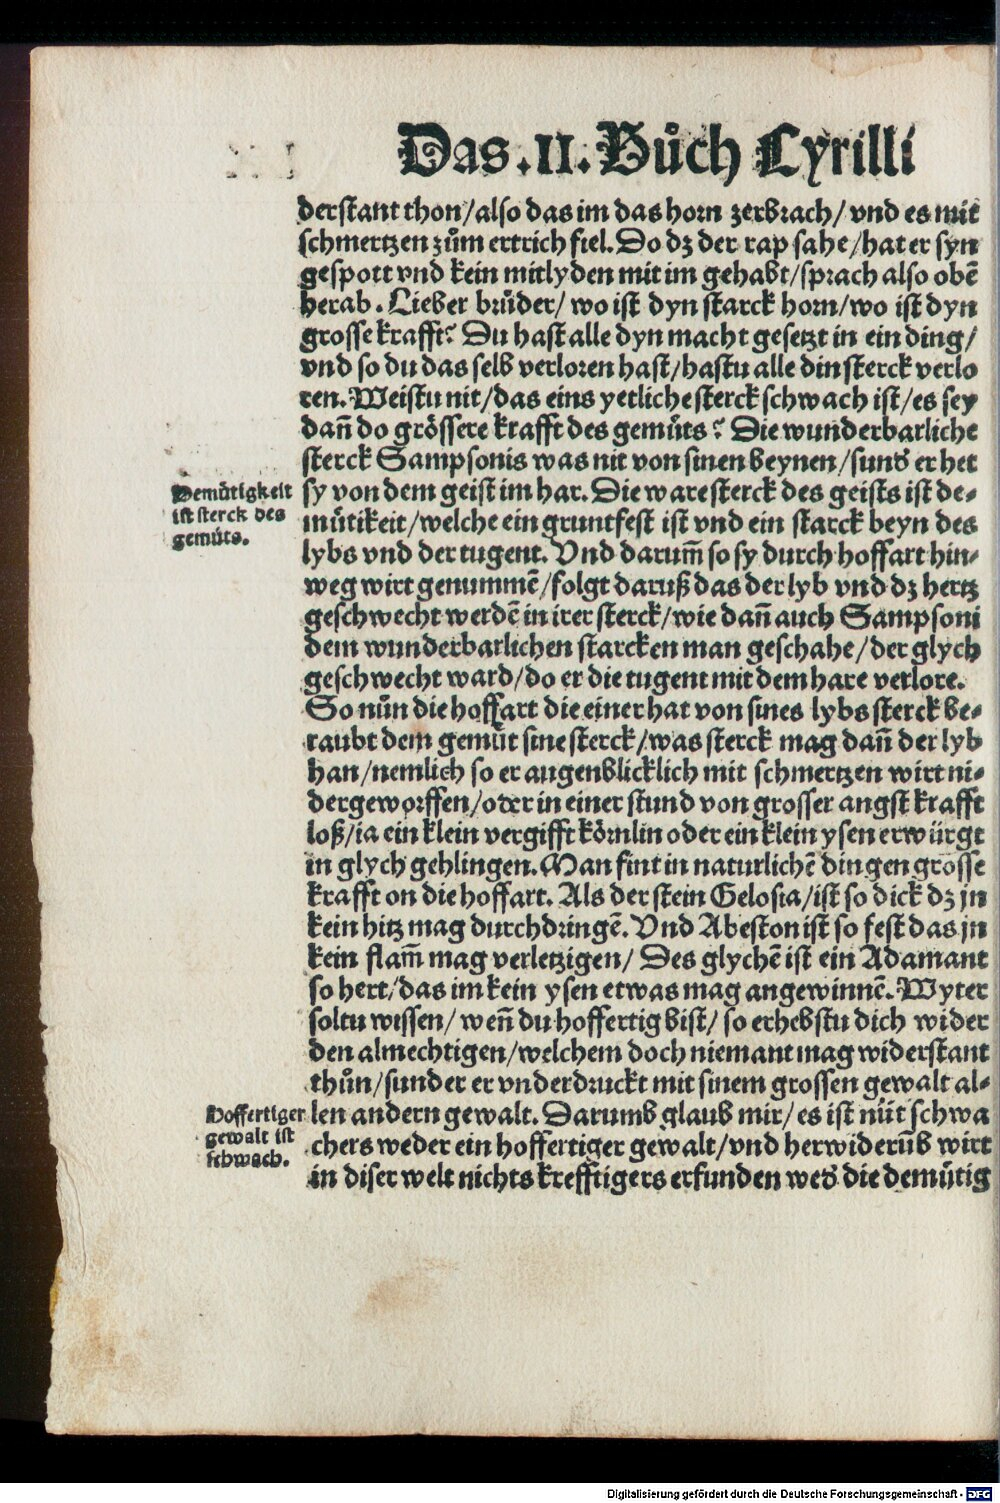 Das .II. Bůch Cyrilli
derstant thon/also das im das horn zerbrach/vnd es mit
schmertzen zům ertrich fiel. Do dz der rap sahe/hat er syn
gespott vnd kein mitlyden mit im gehabt/sprach also obē
herab. Lieber brüder/ wo ist dyn starck horn/wo ist dyn
grosse krafft? Du hast alle dyn macht gesetzt in ein ding/
vnd so du das selb verloren hast/hastu alle din sterck verlo
ren. Weistu nit/das eins yetliche sterck schwach ist/es sey
dañ do grössere krafft des gemüts? Die wunderbarliche
sterck Sampsonis was nit von sinen beynen/sund̓ er het
sy von dem geist im har. Die ware sterck des geists ist de⸗
mütikeit/welche ein gruntfest ist vnd ein starck beyn des
lybs vnd der tugent. Vnd darum̃ so sy durch hoffart hin⸗
weg wirt genummē/folgt daruß das der lyb vnd dz hertz
geschwecht werdē in irer sterck/wie dañ auch Sampsoni
dem wunderbarlichen starcken man geschahe/der glych
geschwecht ward/do er die tugent mit dem hare verlore.
So nůn die hoffart die einer hat von sines lybs sterck be⸗
raubt dem gemüt sine sterck/was sterck mag dañ der lyb
han/nemlich so er augenblicklich mit schmertzen wirt ni⸗
dergeworffen/oder in einer stund von grosser angst krafft
loß/ia ein klein vergifft körnlin oder ein klein ysen erwürgt
in glych gehlingen. Man fint in naturlichē dingen grosse
krafft on die hoffart. Als der stein Gelosia/ist so dick dz jn
kein hitz mag durchdringē. Vnd Abeston ist so fest das jn
kein flam̃ mag verletzigen/ Des glychē ist ein Adamant
so hert/das im kein ysen etwas mag angewinnē. Wyter
soltu wissen/ weñ du hoffertig bist/ so erhebstu dich wider
den almechtigen/welchem doch niemant mag widerstant
thůn/sunder er vnderdruckt mit sinem grossen gewalt al⸗
len andern gewalt. Darumb glaub mir/ es ist nüt schwa
chers weder ein hoffertiger gewalt/vnd herwiderūb wirt
in diser welt nichts krefftigers erfunden wed̓ die demütig
Demütigkeit
ist sterck des
gemüts.
Hoffertiger
gewalt ist
schwach.
Digitalisierung gefördert durch die Deutsche Forschungsgemeinschaft - DFG